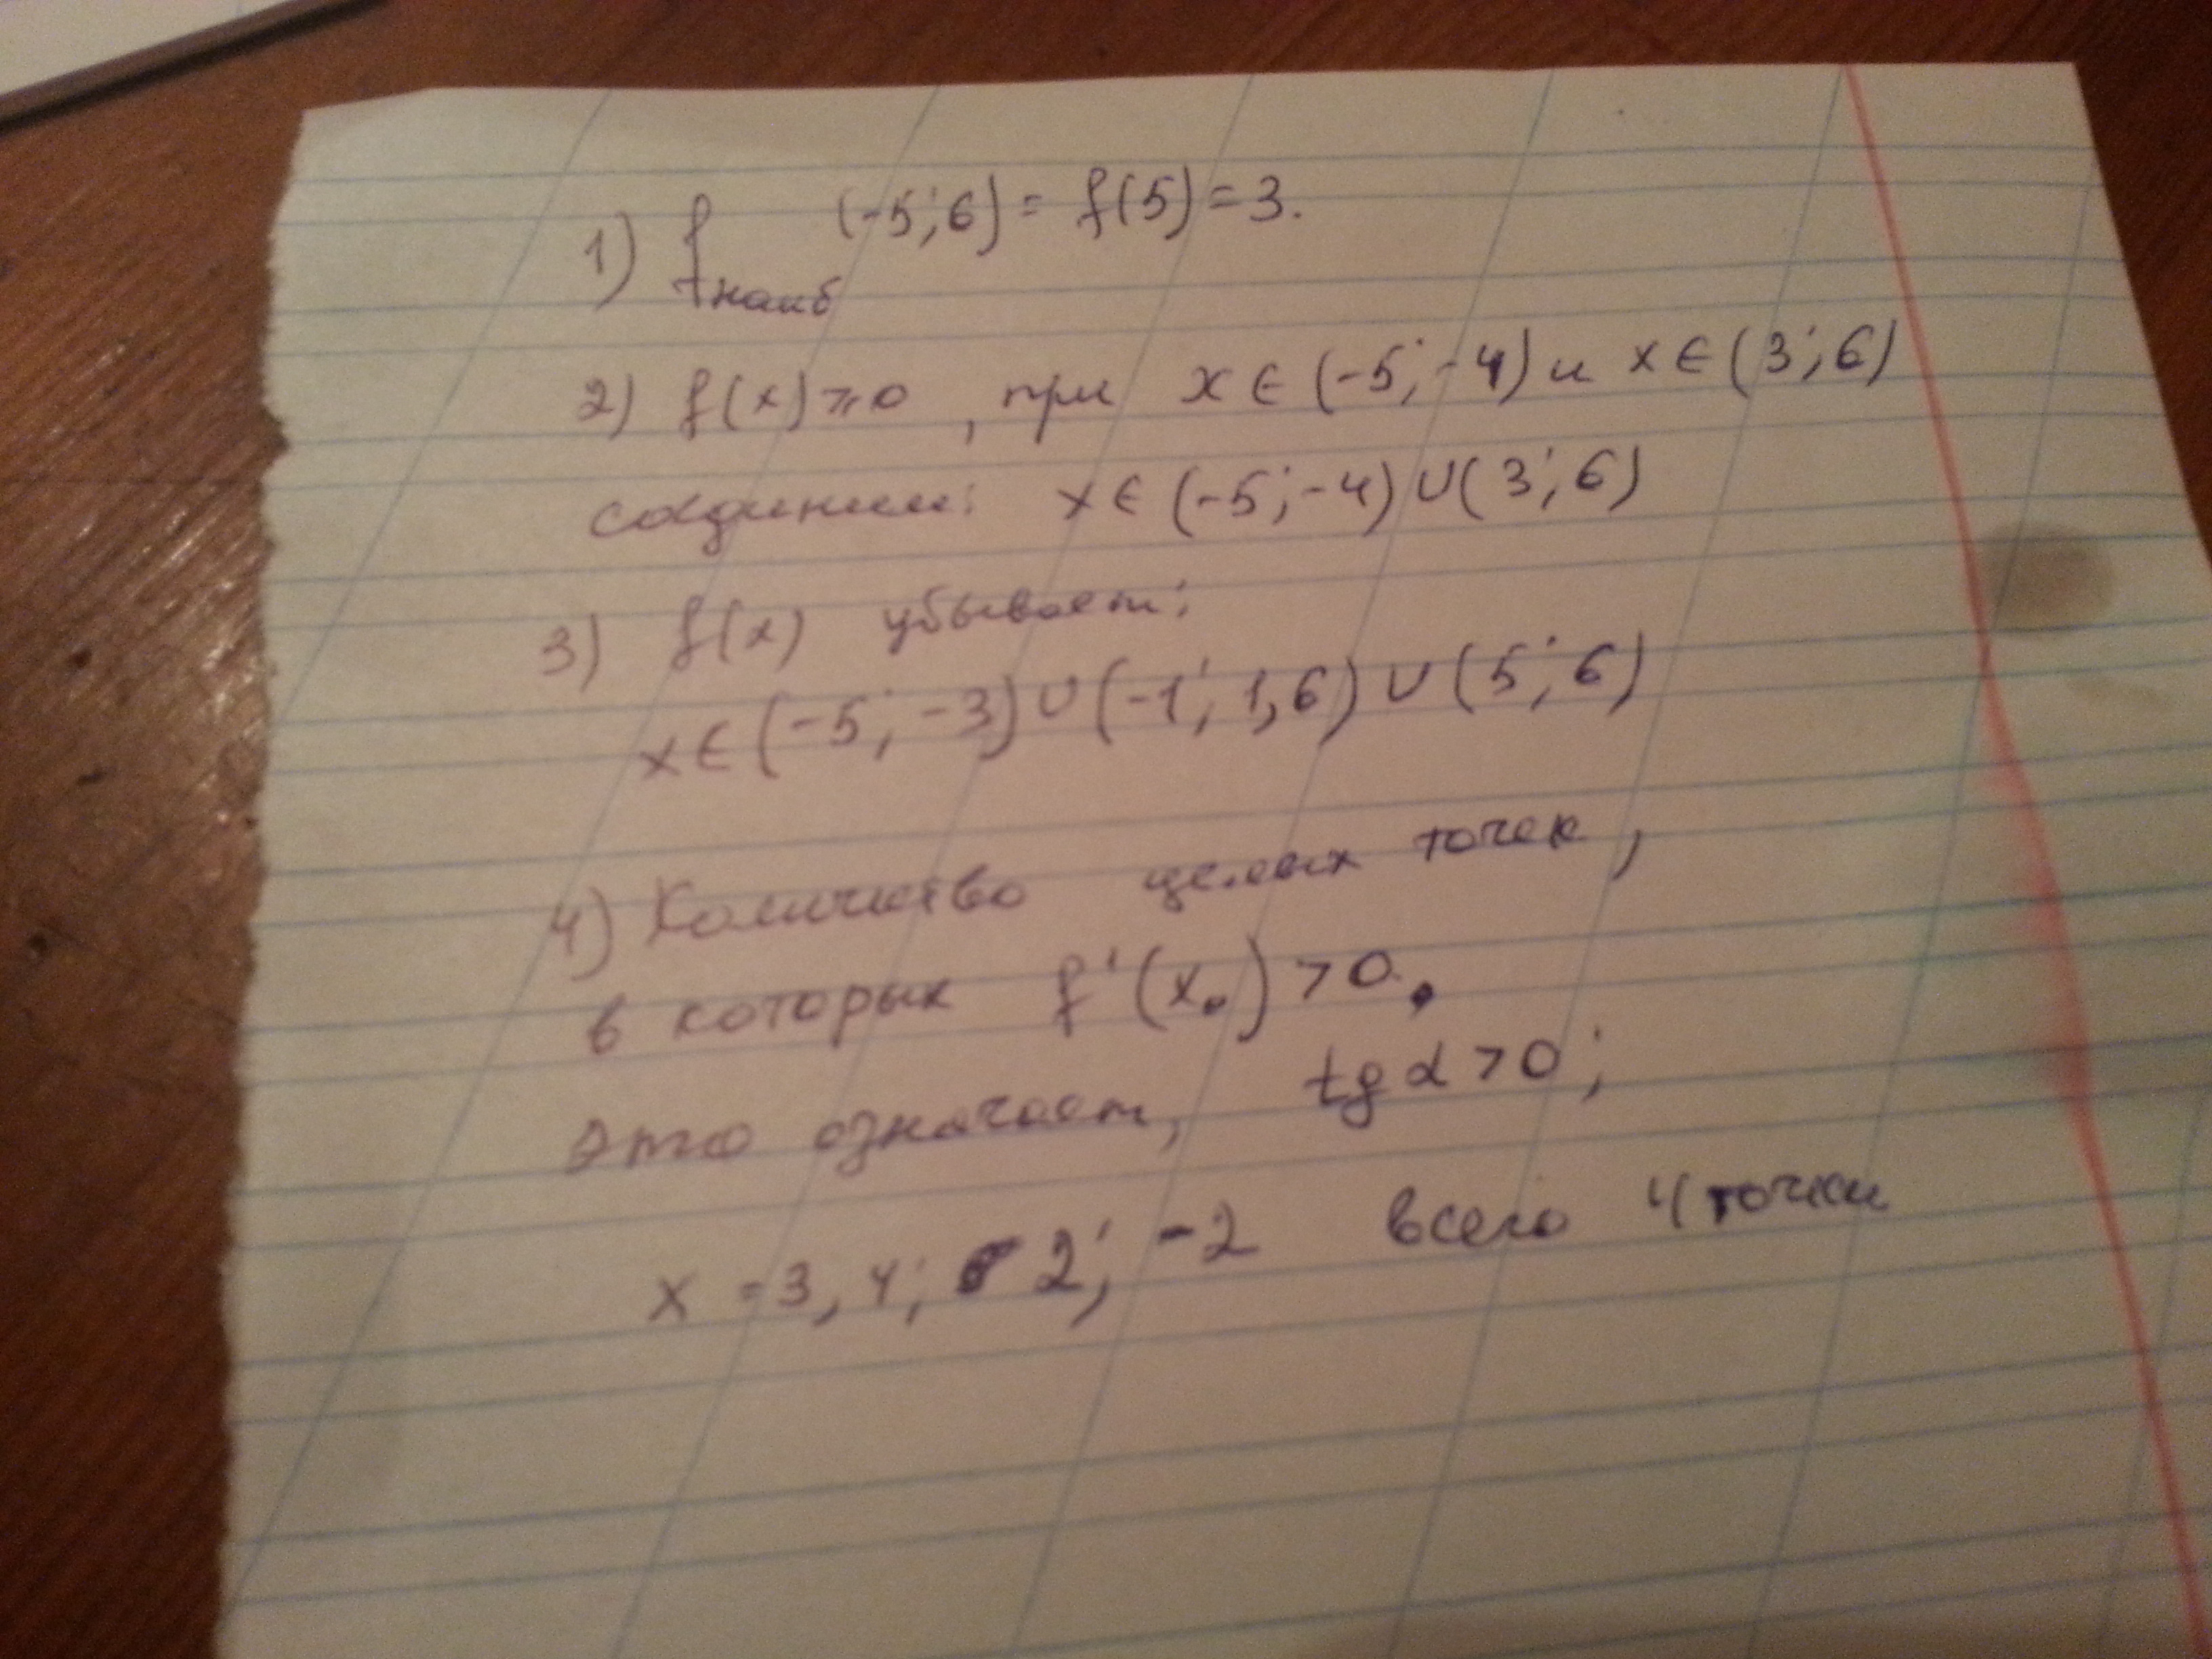 1) f наиб (-5; 6) = f(5) = 3.
2) f(x) ≥ 0, при x ∈ (-5; -4) и x ∈ (3; 6)
соединим: x ∈ (-5; -4) ∪ (3; 6)
3) f(x) убывает:
x ∈ (-5; -3) ∪ (-1; 1,6) ∪ (5; 6)
4) Количество целых точек,
в которых f'(x₀) > 0.
Это означает, tg α > 0;
x = 3, 4; 2; -2 всего 4 точки